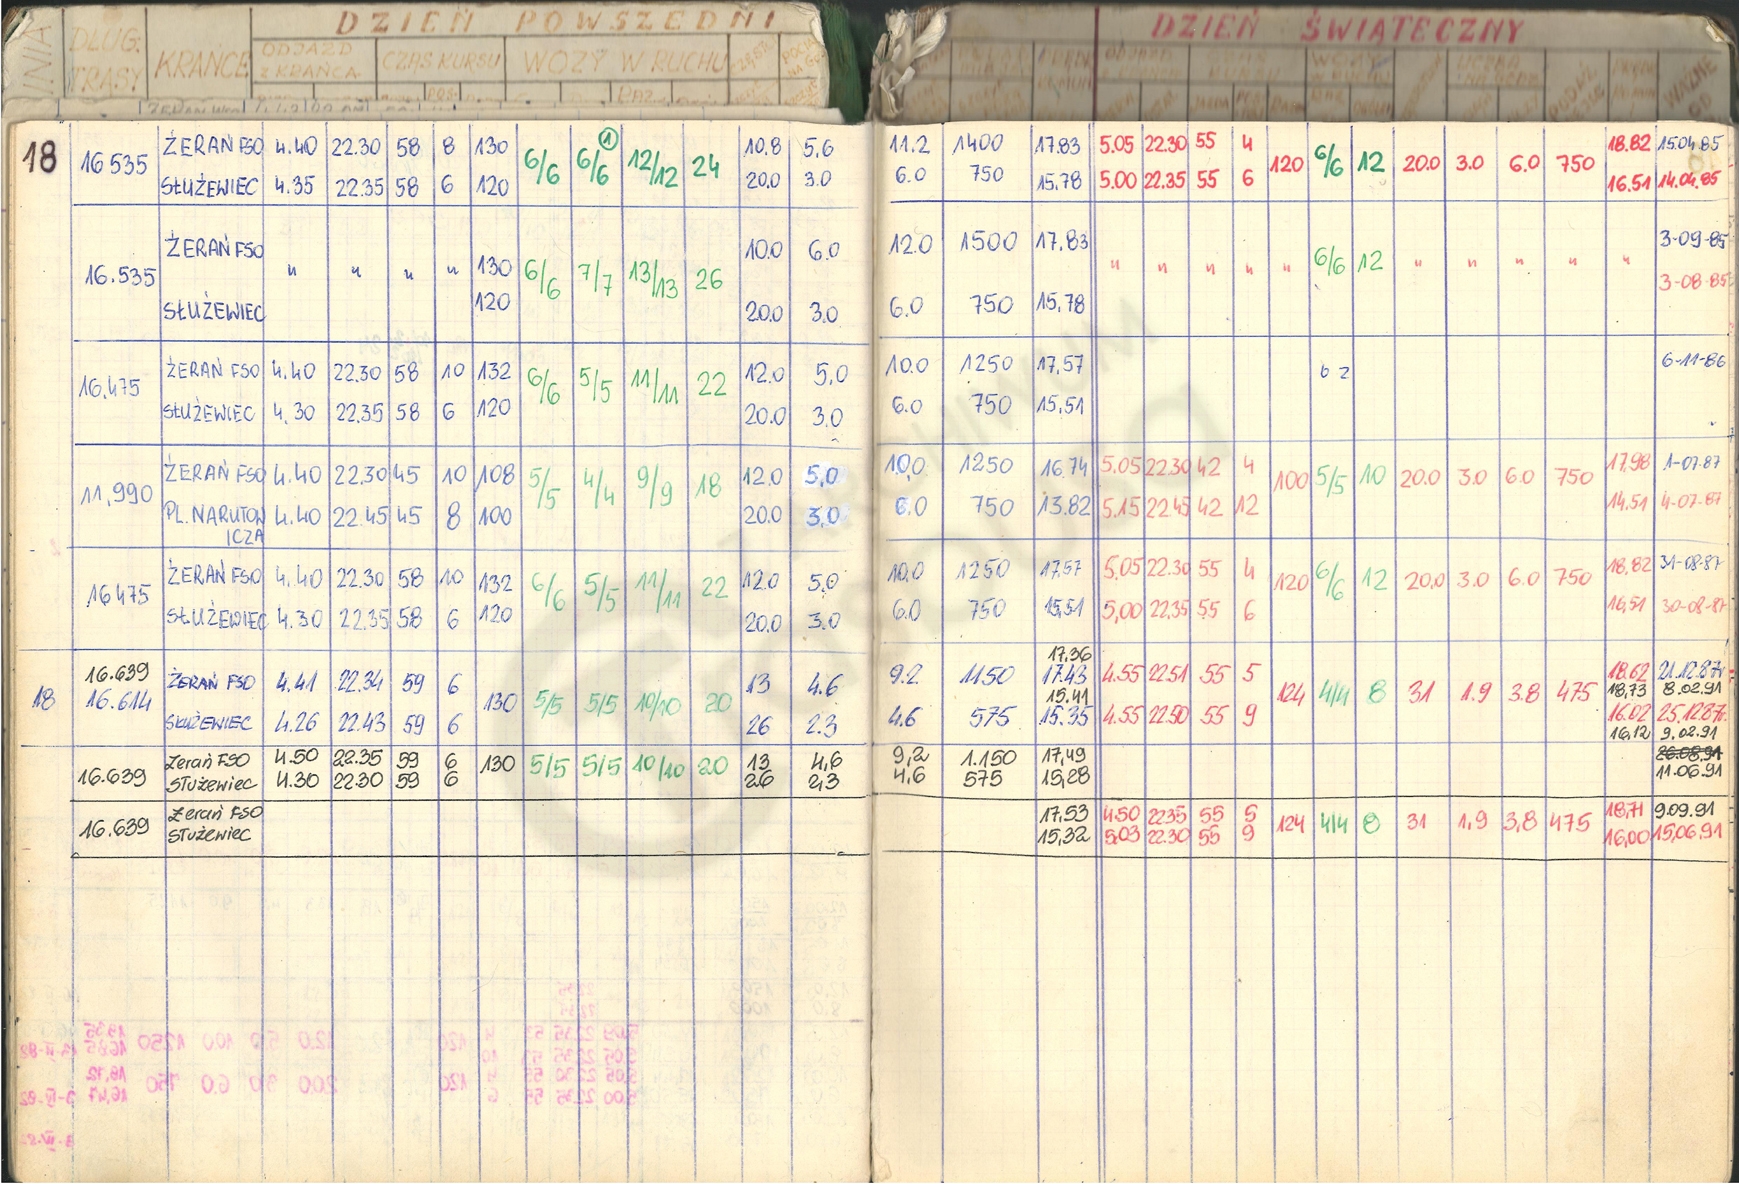 DZIEŃ POWSZEDNI
DZIEŃ ŚWIĄTECZNY
LINIA DŁUG. TRASY KRAŃCE ODJAZD Z KRAŃCA CZAS KURSU WOZY W RUCHU
WAŻNE OD
18 16 535 ŻERAŃ FSO 4.40 22.30 58 8 130 6/6 6/6 1 12/12 24 10.8 5.6 11.2 1400 17.83 5.05 22.30 55 4 120 6/6 12 20.0 3.0 6.0 750 18.82 15.04.85
SŁUŻEWIEC 4.35 22.35 58 6 120 20.0 3.0 6.0 750 15.78 5.00 22.35 55 6 16.51 14.04.85
16.535 ŻERAŃ FSO " " " " 130 6/6 7/7 13/13 26 10.0 6.0 12.0 1500 17.83 " " " " " 6/6 12 " " " " " 3-09-85
3-08-85
SŁUŻEWIEC 120 20.0 3.0 6.0 750 15.78
16,475 ŻERAŃ FSO 4.40 22.30 58 10 132 6/6 5/5 11/11 22 12.0 5,0 10.0 1250 17,57 6-11-86
SŁUŻEWIEC 4.30 22.35 58 6 120 20.0 3.0 6.0 750 15,51
11,990 ŻERAŃ FSO 4.40 22.30 45 10 108 5/5 4/4 9/9 18 12.0 5,0 10,0 1250 16.74 5.05 22.30 42 4 100 5/5 10 20.0 3.0 6.0 750 17.98 1-07-87
PL. NARUTOW 4.40 22.45 45 8 100 20.0 3,0 6,0 750 13.82 5.15 22.45 42 12 14.51 4-07-87
ICZA
16 475 ŻERAŃ FSO 4.40 22.30 58 10 132 6/6 5/5 11/11 22 12.0 5,0 10.0 1250 17.57 5.05 22.30 55 4 120 6/6 12 20.0 3.0 6.0 750 18,82 31-08-87
SŁUŻEWIEC 4.30 22.35 58 6 120 20.0 3.0 6.0 750 15,51 5,00 22.35 55 6 16,51 30-08-87
16.639 17,36
18 16.614 ŻERAŃ FSO 4.41 22.34 59 6 130 5/5 5/5 10/10 20 13 4.6 9.2 1150 17.43 4.55 22.51 55 5 124 4/4 8 31 1.9 3.8 475 18.62 21.12.87r.
15.41 18,73 8.02.91
SŁUŻEWIEC 4.26 22.43 59 6 26 2.3 4.6 575 15.35 4.55 22.50 55 9 16.02 25.12.87r.
16,12 9.02.91
16.639 Żerań FSO 4.50 22.35 59 6 130 5/5 5/5 10/10 20 13 4,6 9,2 1.150 17,49 26.08.91
Służewiec 4.30 22.30 59 6 26 2,3 4,6 575 15,28 11.06.91
16.639 Żerań FSO 17,53 4.50 22.35 55 5 124 4/4 8 31 1,9 3,8 475 18,71 9.09.91
Służewiec 15,32 5.03 22.30 55 9 16,00 15,06.91